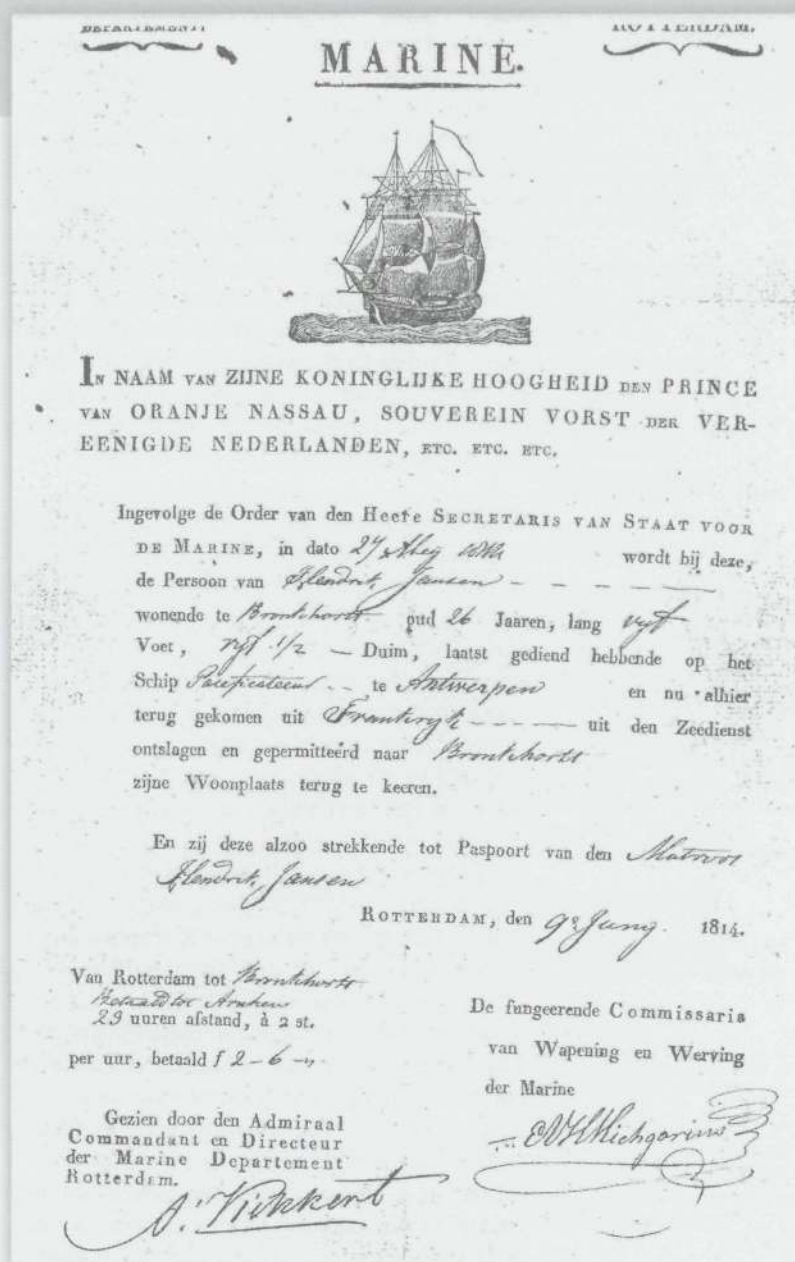 DEPARTEMENT ROTTERDAM.
MARINE.
IN NAAM VAN ZIJNE KONINGLIJKE HOOGHEID DEN PRINCE
VAN ORANJE NASSAU, SOUVEREIN VORST DER VER-
EENIGDE NEDERLANDEN, ETC. ETC. ETC.
Ingevolge de Order van den Heere SECRETARIS VAN STAAT VOOR
DE MARINE, in dato 27 wordt bij deze,
de Persoon van Hendrik Jansen - - - - -
wonende te Bronkhorst oud 26 Jaaren, lang vyf
Voet, vyf 1/2 - Duim, laatst gediend hebbende op het
Schip Pacificateur - - te Antwerpen en nu alhier
terug gekomen uit Frankryk - - - - - uit den Zeedienst
ontslagen en gepermitteerd naar Bronkhorst
zijne Woonplaats terug te keeren.
En zij deze alzoo strekkende tot Paspoort van den Matroos
Hendrik Jansen
ROTTERDAM, den 9e Juny. 1814.
Van Rotterdam tot Bronkhorst
Betaald tot Arnhem
23 uuren afstand, à 2 st.
per uur, betaald f 2-6-"
De fungeerende Commissaris
van Wapening en Werving
der Marine
Gezien door den Admiraal
Commandant en Directeur
der Marine Departement
Rotterdam.